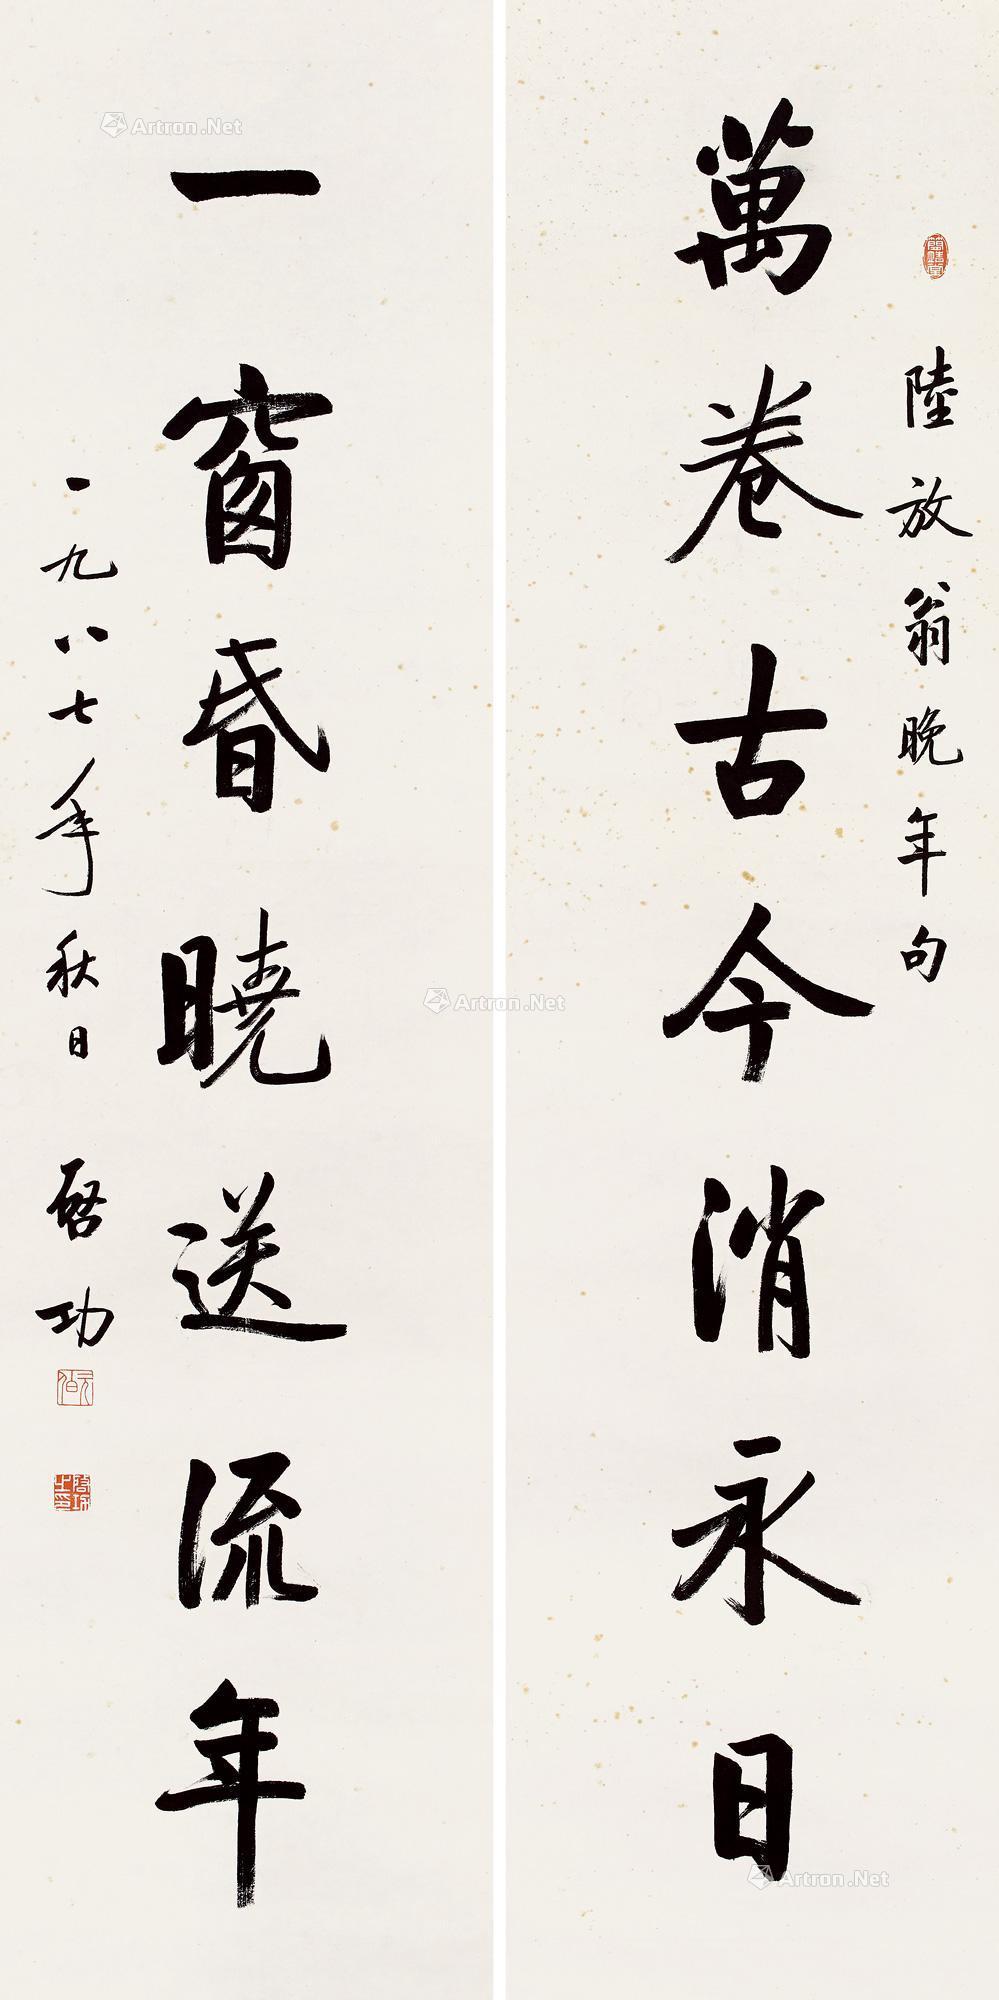 陸放翁晚年句
萬卷古今消永日
一窗昏曉送流年
一九八七年秋日 啓功
元白
啓功之印
Artron.Net
Artron.Net
Artron.Net